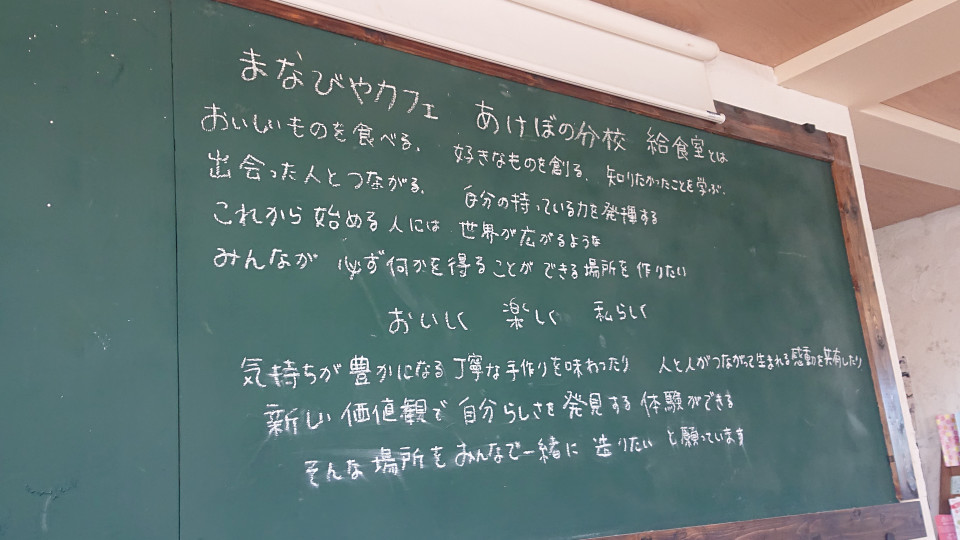 まなびやカフェ あけぼの分校 給食室とは
おいしいものを食べる、 好きなものを創る、 知りたかったことを学ぶ、
出会った人とつながる、 自分の持っている力を発揮する
これから始める人には 世界が広がるような
みんなが 必ず何かを得ることができる場所を作りたい
おいしく 楽しく 私らしく
気持ちが豊かになる丁寧な手作りを味わったり 人と人がつながって生まれる感動を共有したり
新しい価値観で自分らしさを発見する体験ができる
そんな場所をみんなで一緒に 造りたい と願っています